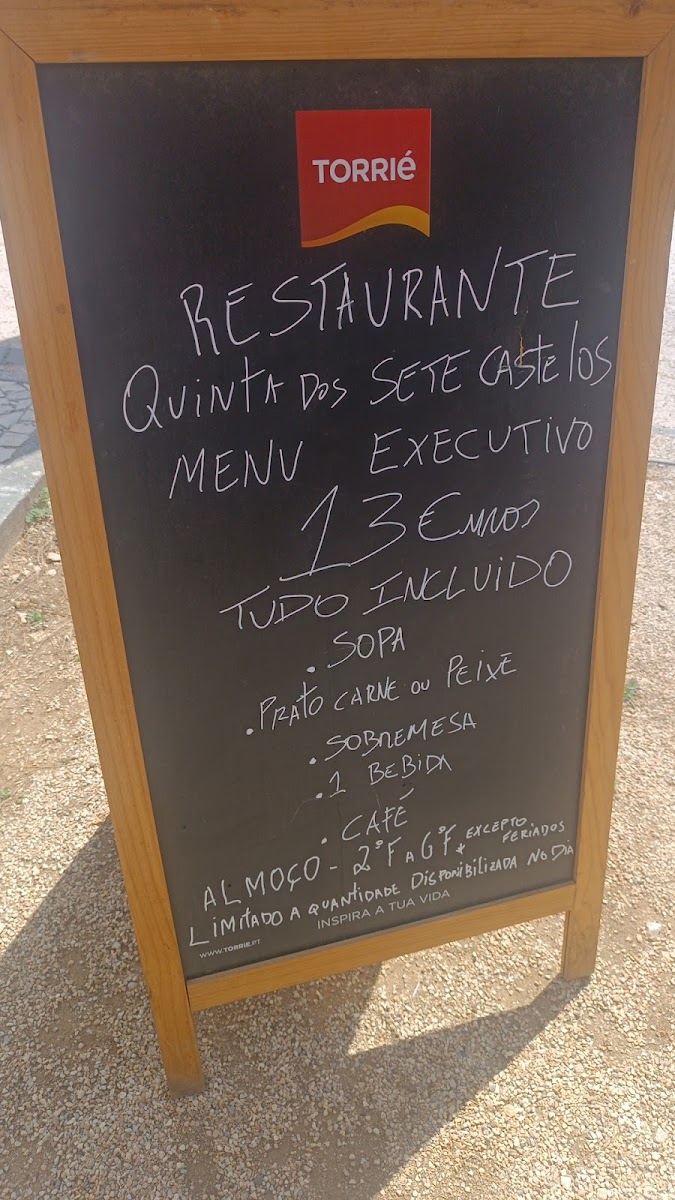 TORRIÉ
RESTAURANTE
QUINTA DOS SETE CASTELOS
MENU EXECUTIVO
13 €UROS
TUDO INCLUIDO
. SOPA
. PRATO CARNE OU PEIXE
. SOBREMESA
. 1 BEBIDA
. CAFÉ
ALMOÇO - 2ªF A 6ªF * EXCEPTO FERIADOS
LIMITADO A QUANTIDADE DISPONIBILIZADA NO DIA
INSPIRA A TUA VIDA
WWW.TORRIE.PT